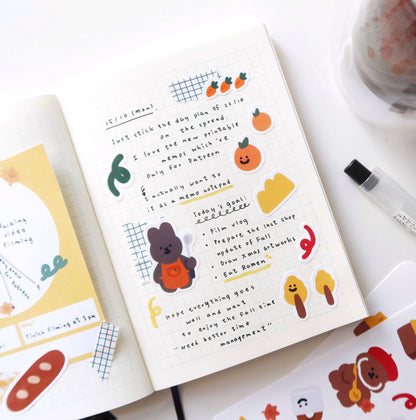 25/10 (Mon).
Just stick the day plan of 25/10
on the spread.
I love the new printable
memos which're
only for Patreon
I actually want to
it as a memo notepad
Today's goal:
• Film vlog
• Prepare the last shop
update of Fall
• Draw Xmas artworks
• Eat Ramen
Hope everything goes
well and want
to enjoy the Fall time
"Need better time
management"
video
filming
Finish filming at 5pm